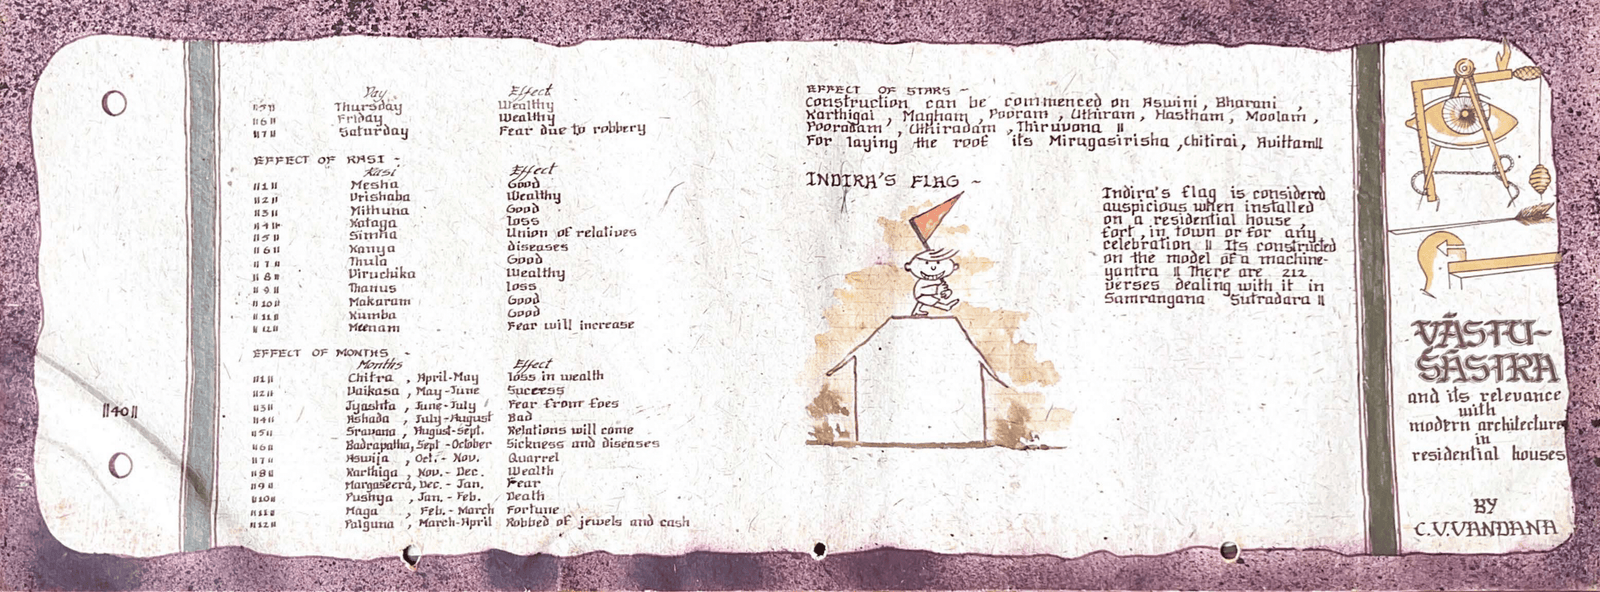 Day Effect
॥5॥ Thursday Wealthy
॥6॥ Friday Wealthy
॥7॥ Saturday Fear due to robbery
EFFECT OF RASI -
Rasi Effect
॥1॥ Mesha Good
॥2॥ Vrishaba Wealthy
॥3॥ Mithuna Good
॥4॥ Kataga loss
॥5॥ Simha Union of relatives
॥6॥ Kanya diseases
॥7॥ Thula Good
॥8॥ Viruchika Wealthy
॥9॥ Thanus loss
॥10॥ Makaram Good
॥11॥ Kumba Good
॥12॥ Meenam Fear will increase
EFFECT OF MONTHS -
Months Effect
॥1॥ Chitra , April-May loss in wealth
॥2॥ Vaikasa , May-June Success
॥3॥ Jyashta , June-July Fear from foes
॥4॥ Ashada , July-August Bad
॥5॥ Sravana , August-Sept. Relations will come
॥6॥ Badrapatha, Sept -October Sickness and diseases
॥7॥ Aswija , Oct.- Nov. Quarrel
॥8॥ Karthiga , Nov.- Dec. Wealth
॥9॥ Margaseera, Dec. - Jan. Fear
॥10॥ Pushya , Jan. - Feb. Death
॥11॥ Maga , Feb. - March Fortune
॥12॥ Palguna , March-April Robbed of jewels and cash
॥40॥
EFFECT OF STARS ~
Construction can be commenced on Aswini , Bharani ,
Karthigai , Magham , Pooram , Uthiram , Hastham , Moolam ,
Pooradam , Uthiradam , Thiruvona ॥
For laying the roof its Mirugasirisha , Chitirai , Avittam॥
INDIRA'S FLAG ~
Indira's flag is considered
auspicious when installed
on a residential house,
fort, in town or for any
celebration ॥ Its constructed
on the model of a machine-
yantra ॥ There are 212
verses dealing with it in
Samrangana Sutradara ॥
VĀSTU-
SĀSTRA
and its relevance
with
modern architecture
in
residential houses
BY
C.V.VANDANA